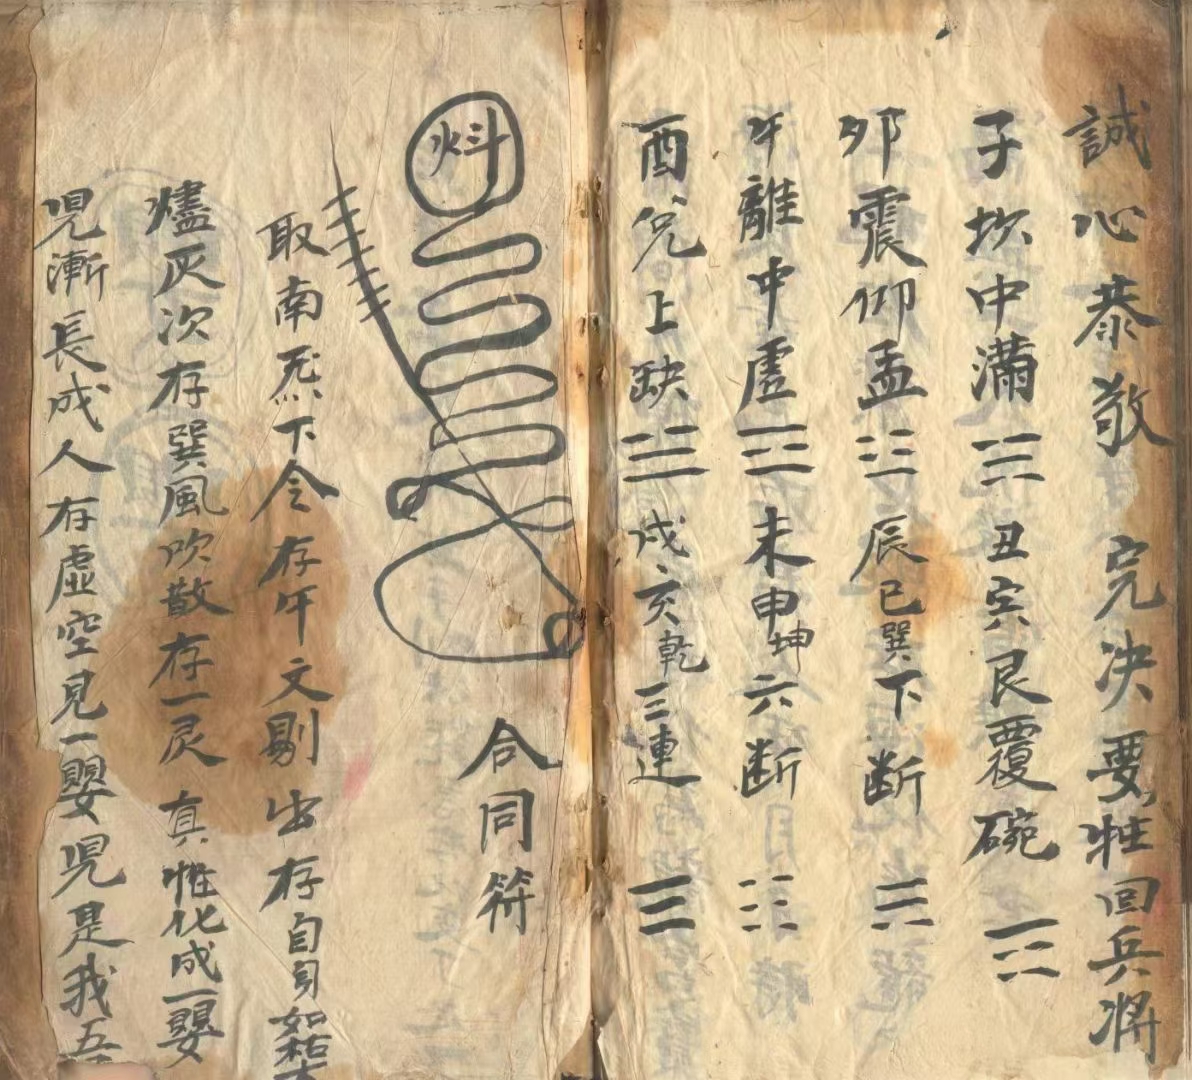 誠心恭敬 完决要牲回兵將
子坎中滿☵丑寅艮覆碗☶
卯震仰盂☳辰巳巽下断☴
午離中虛☲未申坤六断☷
酉兌上缺☱戌亥乾三連☰
合同符
取南炁下令存午文剔出存自身如枯木
爐灰次存巽風吹散存一灵真惟化成一嬰
児漸長成人存虛空見一嬰児是我吾